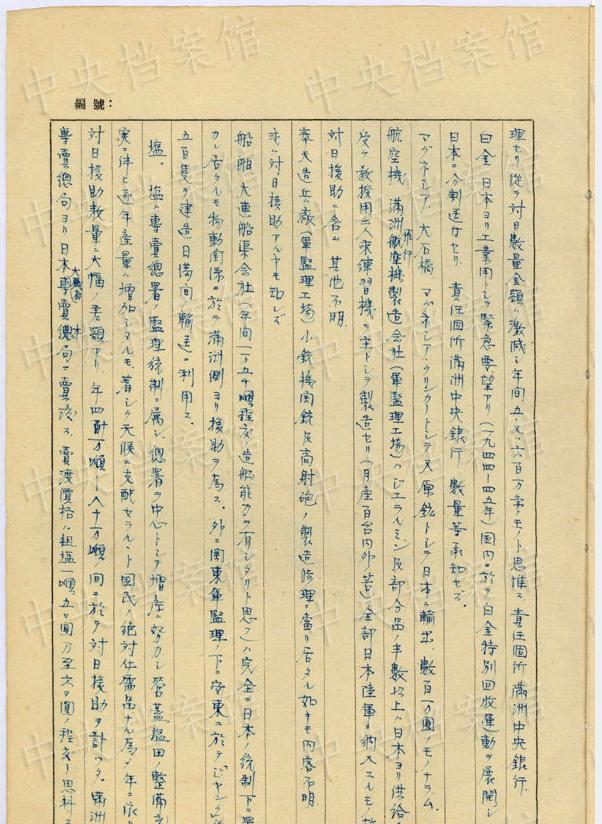 中央档案馆
編號:
理セリ従ッテ対日数量金額ハ激減シ年間五、又ハ六百万弗ノモノト思惟ス 責任個所満洲中央銀行
白金 日本ヨリ工業用トシテ緊急要望アリ(一九四四-四五年)国内ニ於テ白金特別回収運動ヲ展開シ
日本ニ分割送付セリ 責任個所満洲中央銀行 数量等承知セズ
マグネシア 大石橋 マグネシア・クリンカートシテ又原鉱トシテ日本ニ輸出ス 数百万圓ノモノナラム
航空機 満洲飛行機製造会社(軍監理工場)ハジュラルミン及部分品ノ半数以上ハ日本ヨリ供給
受ケ教授用三人乗練習機ヲ主トシテ製造セリ(月産百台内外) 全部日本陸軍ニ納入スルモ
対日援助ニ含ム 其他不明
奉天造兵廠(軍監理工場)小銃機関銃及高射砲ノ製造修理ニ當リ居タル如キモ内容不明
求ム対日援助アルヤモ知レズ
船舶 大連船渠会社(年間一万五千噸程度造船能力ヲ有シタリト思フ)ハ完全ニ日本ノ統制下ニ
カレ居タルモ物動関係ニ於テ満洲側ヨリ援助ヲ為ス。外ニ関東軍監理ノ下ニ安東ニ於テジャンク
五百隻ヲ建造日満間ノ輸送ニ利用ス
塩。塩ハ専賣總署ノ監理統制ニ属シ總署ヲ中心トシテ増産ニ努力シ営蓋塩田ノ整備充
実ニ伴ヒ逐年産量ハ増加シタルモ、著シク天候ニ支配セラルルト国民ノ絶対必需品ナル為メ年ニ依リ
対日援助数量ニ大幅ノ差額アリ 年四百万噸-八十万噸ノ間ニ於テ対日援助ヲ計ツタ。満洲
専賣總局ヨリ日本専賣總局ニ賣渡ス、賣渡價格ハ粗塩一噸五〇圓乃至六〇圓ノ程度ト思料ス